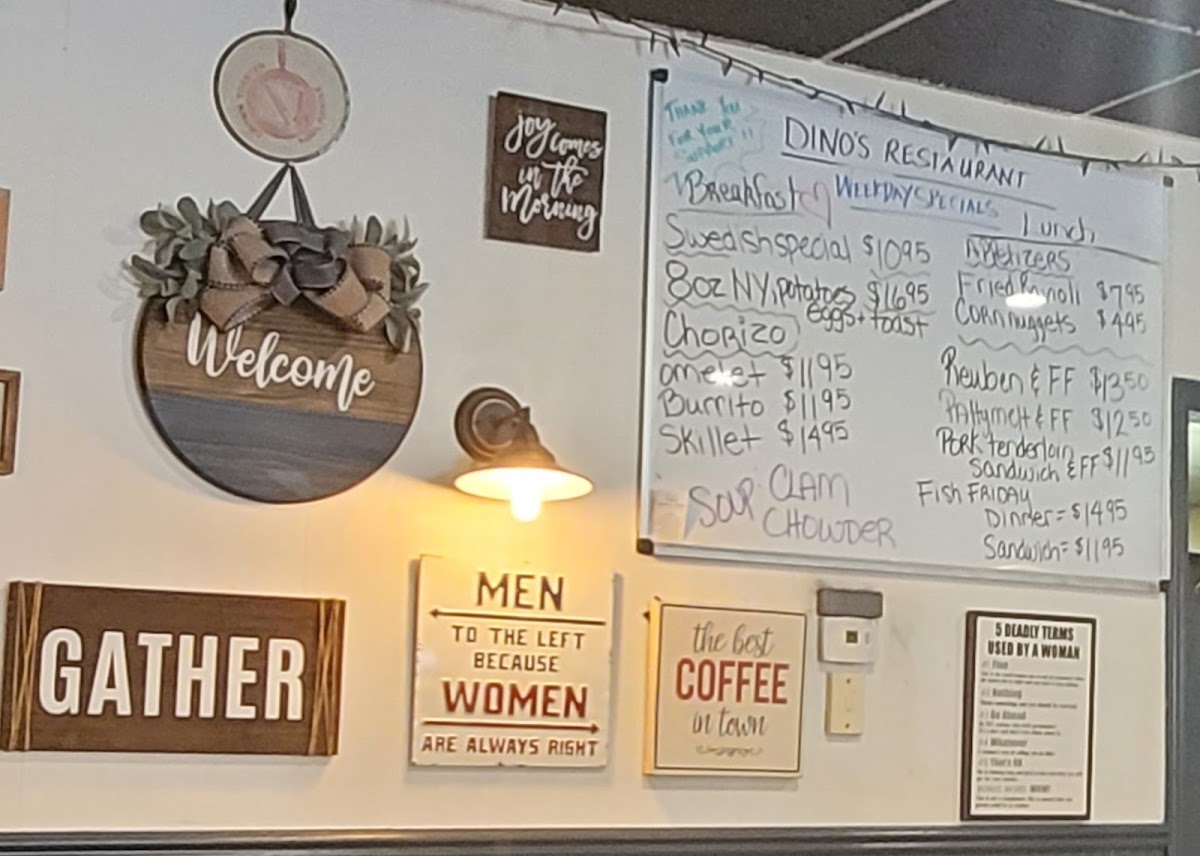 Joy comes
in the
Morning
Welcome
THANK YOU
FOR YOUR
SUPPORT!!
DINO'S RESTAURANT
WEEKDAY SPECIALS
Breakfast
Swedish special $10.95
8oz NY, potatoes $16.95
eggs + toast
Chorizo
omelet $11.95
Burrito $11.95
Skillet $14.95
SOUP: CLAM
CHOWDER
Lunch
Appetizers
Fried Ravioli $7.95
Corn nuggets $4.95
Reuben & FF $13.50
Pattymelt & FF $12.50
Pork tenderloin
Sandwich & FF $11.95
Fish FRIDAY
Dinner = $14.95
Sandwich = $11.95
GATHER
MEN
TO THE LEFT
BECAUSE
WOMEN
ARE ALWAYS RIGHT
the best
COFFEE
in town
5 DEADLY TERMS
USED BY A WOMAN
#1 Fine
#2 Nothing
#3 Go Ahead
#4 Whatever
#5 That's OK